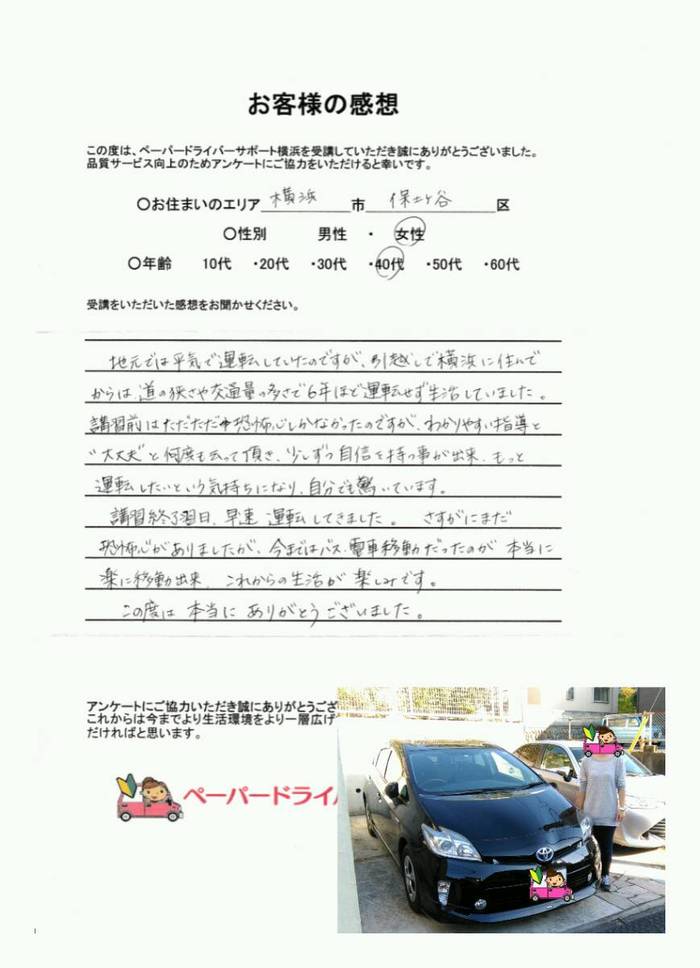 お客様の感想
この度は、ペーパードライバーサポート横浜を受講していただき誠にありがとうございました。
品質サービス向上のためアンケートにご協力をいただけると幸いです。
〇お住まいのエリア 横浜 市 保土ヶ谷 区
〇性別 男性 ・ 女性
〇年齢 10代 ・20代 ・30代 ・40代 ・50代 ・60代
受講をいただいた感想をお聞かせください。
地元では平気で運転していたのですが、引越しで横浜に住んで
からは道の狭さや交通量の多さで6年ほど運転せず生活していました。
講習前はただただ恐怖心しかなかったのですが、わかりやすい指導と
"大丈夫"と何度も云って頂き、少しずつ自信を持つ事が出来、もっと
運転したいという気持ちになり、自分でも驚いています。
講習終了翌日、早速 運転してきました。 さすがにまだ
恐怖心がありましたが、今まではバス、電車移動だったのが 本当に
楽に移動出来、これからの生活が 楽しみです。
この度は 本当に ありがとうございました。
アンケートにご協力いただき誠にありがとうござ
これからは今までより生活環境をより一層広げ
だければと思います。
ペーパードライバ